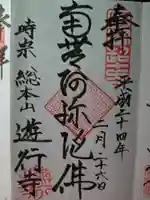 奉拝
平成二十四年
二月二十六日
南無阿弥陀佛
時宗 総本山
遊行寺